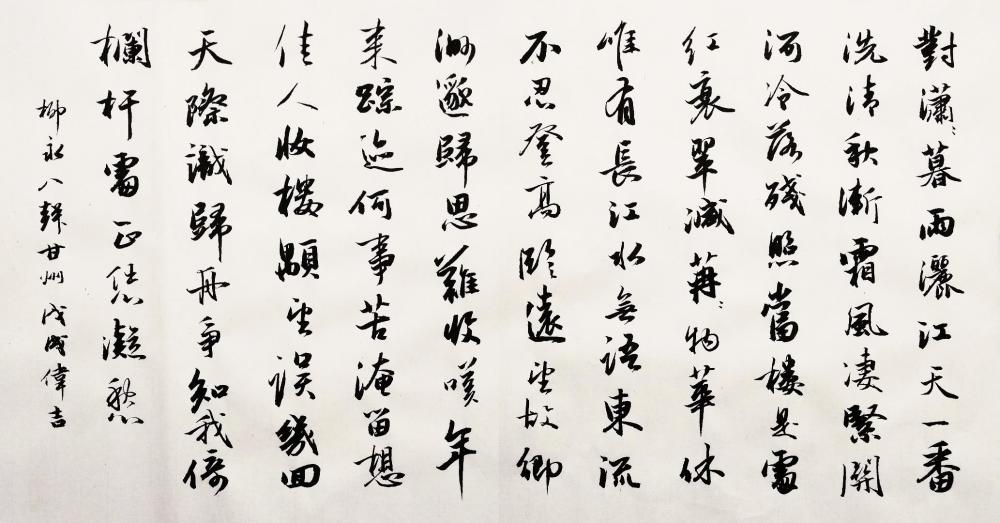 對瀟〻暮雨灑江天一番
洗清秋漸霜風凄緊関
河冷落殘照當樓是處
紅衰翠減苒〻物華休
唯有長江水無語東流
不忍登高臨遠望故鄉
渺邈歸思難收嘆年
来踪迹何事苦淹留想
佳人妝樓顒望誤幾回
天際識歸舟爭知我倚
欄杆處正恁凝愁
柳永八聲甘州戊戌偉吉